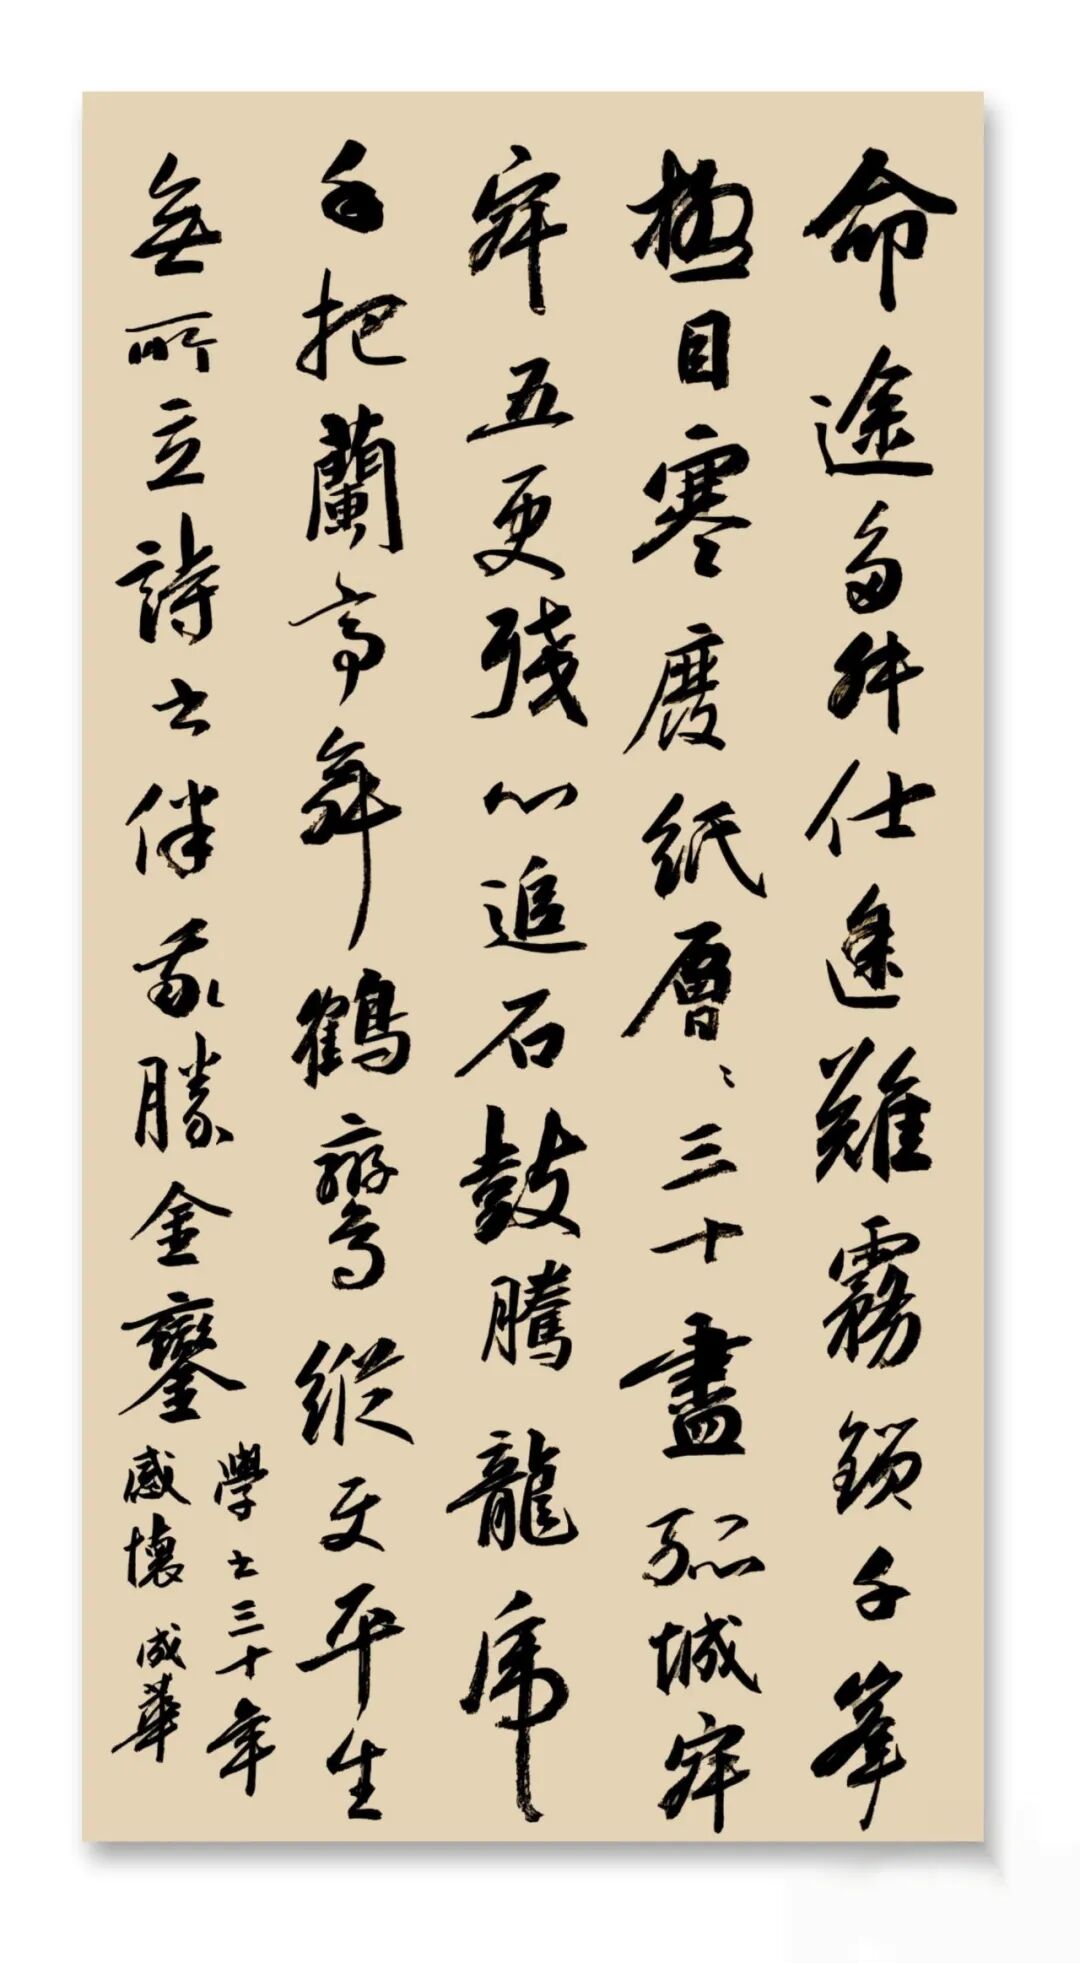 命途多舛仕途難霧鎖千峯
極目寒廢紙層層三十盡孤城寂
寂五更殘心追石鼓騰龍虎
手把蘭亭舞鶴鸞縱使平生
無所立詩書伴我勝金鑾
學書三十年
感懷 成華